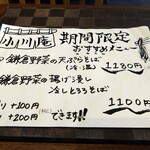 小川庵
期間限定
おすすめメニュー
鎌倉野菜の天ぷらそば
(冷・温) 1180円
鎌倉野菜の揚げ浸し
冷しとろろそば
1100円
+100円
+200円 できます!!